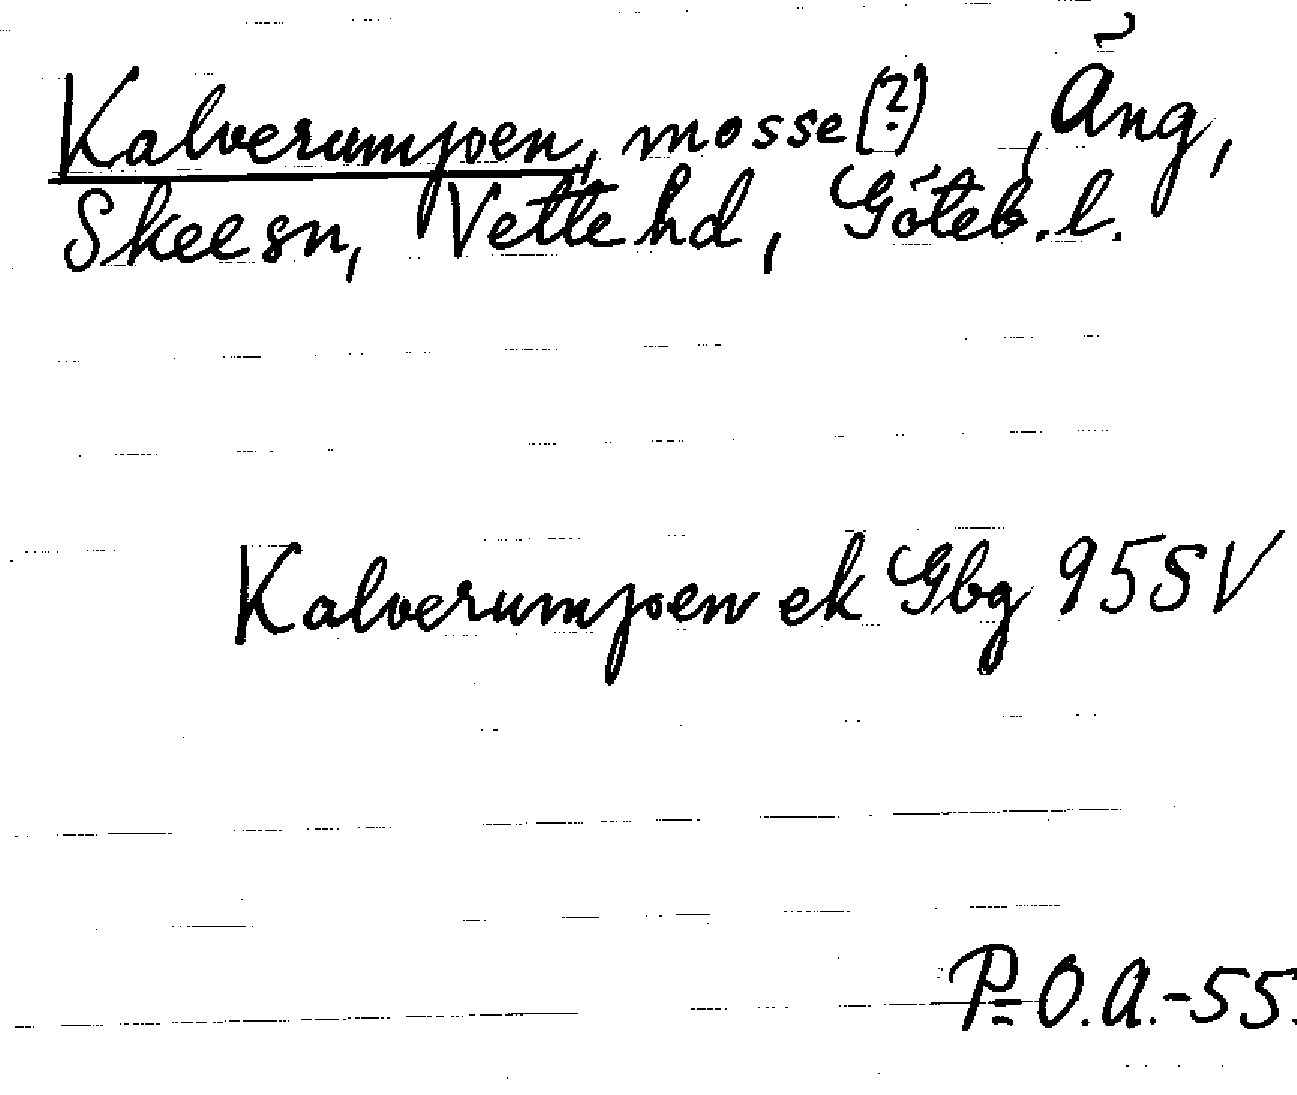 Kalverumpen, mosse(?) , Äng,
Skee sn, Vette hd, Göteb. l.
Kalverumpen ek Gbg 95SV
P=O.A.-55.